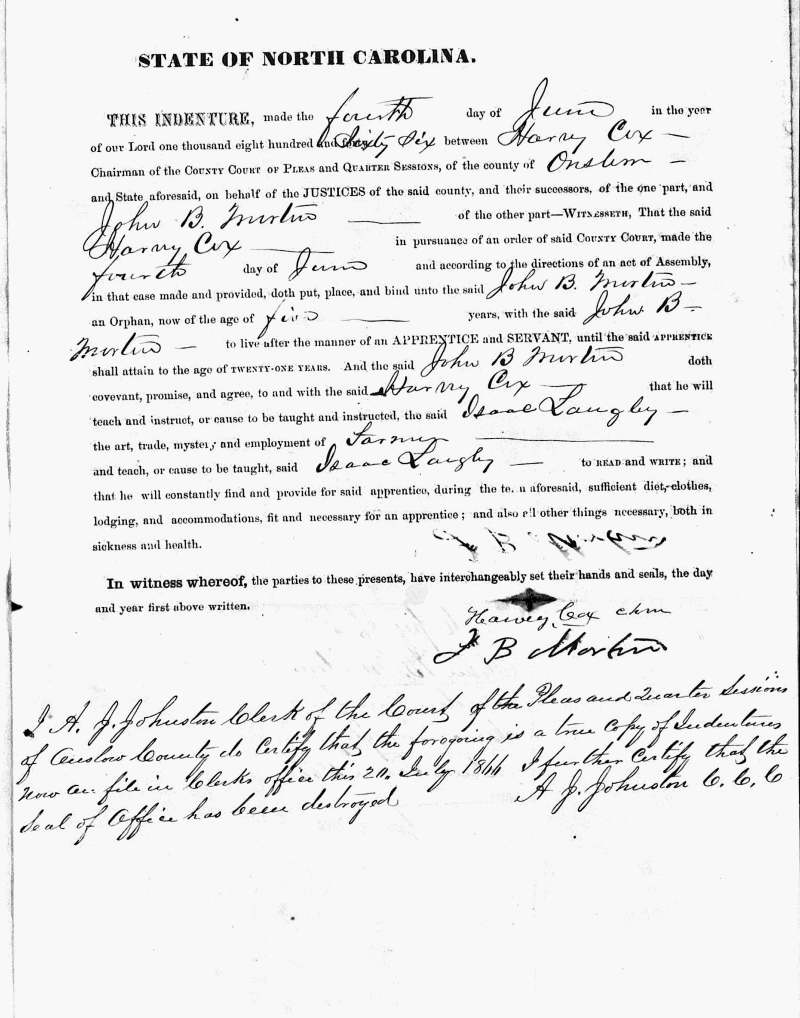 STATE OF NORTH CAROLINA.
THIS INDENTURE, made the fourth day of June in the year
of our Lord one thousand eight hundred and Sixty Six between Harvy Cox —
Chairman of the COUNTY COURT OF PLEAS and QUARTER SESSIONS, of the county of Onslow —
and State aforesaid, on behalf of the JUSTICES of the said county, and their successors, of the one part, and
John B. Mortin — of the other part—WITNESSETH, That the said
Harvy Cox — in pursuance of an order of said COUNTY COURT, made the
fourth day of June and according to the directions of an act of Assembly,
in that case made and provided, doth put, place, and bind unto the said John B. Mortin —
an Orphan, now of the age of five — years, with the said John B —
Mortin — to live after the manner of an APPRENTICE and SERVANT, until the said APPRENTICE
shall attain to the age of TWENTY-ONE YEARS. And the said John B Mortin doth
covevant, promise, and agree, to and with the said Harvy Cox — that he will
teach and instruct, or cause to be taught and instructed, the said Isaac Langley —
the art, trade, mystery and employment of Farmer —
and teach, or cause to be taught, said Isaac Langley — to READ and WRITE; and
that he will constantly find and provide for said apprentice, during the term aforesaid, sufficient diet, clothes,
lodging, and accommodations, fit and necessary for an apprentice; and also all other things necessary, both in
sickness and health.
In witness whereof, the parties to these presents, have interchangeably set their hands and seals, the day
and year first above written.
Harvey Cox chm
J B Mortin
I A. J. Johnston Clerk of the Court of the Pleas and Quarter Sessions
of Onslow County do Certify that the forogoing is a true Copy of Indentures
now on file in Clerks office this 20, July 1866 I further Certify that the
Seal of Office has been destroyed
A J. Johnston C. C. C